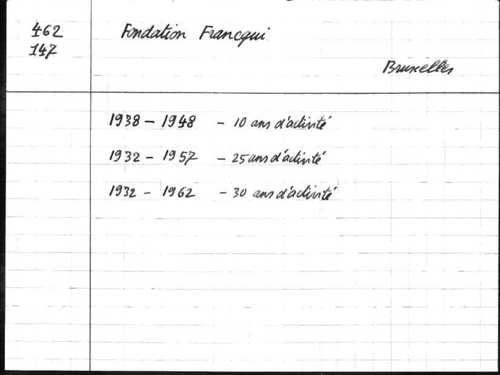 462
147
Fondation Francqui
Bruxelles
1938 - 1948 - 10 ans d'activité
1932 - 1957 - 25 ans d'activité
1932 - 1962 - 30 ans d'activité